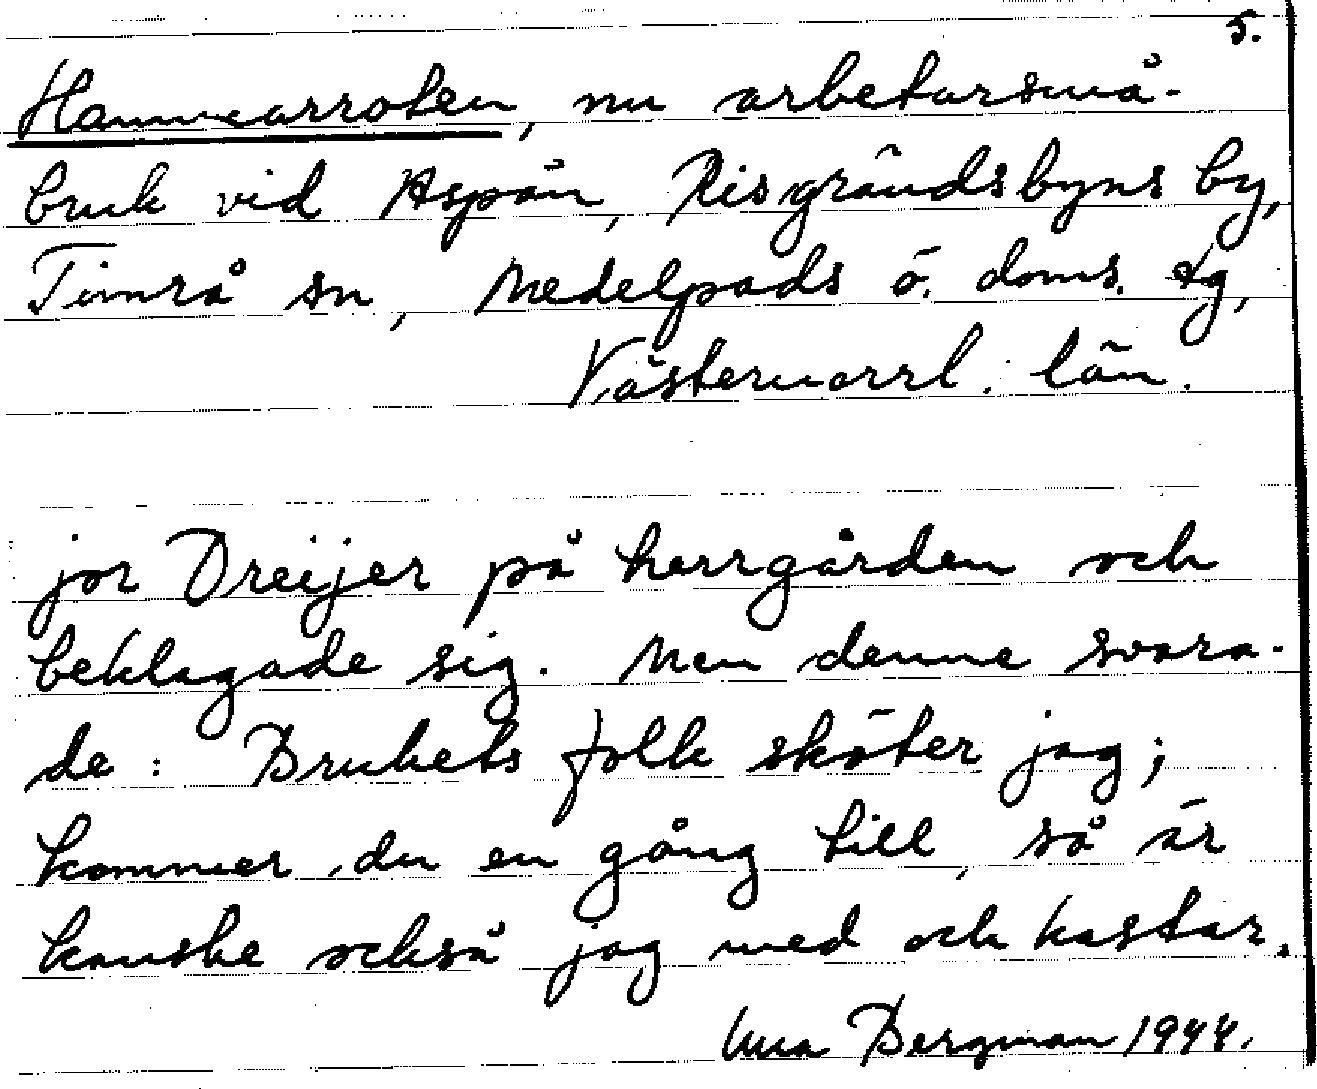 5.
Hammarroten, nu arbetarsmå-
bruk vid Aspån, Risgrändsbyns by,
Timrå sn, Medelpads ö. doms. tg,
Västernorrl. län.
jor Dreijer på herrgården och
beklagade sig. Men denne svara-
de: Brukets folk sköter jag;
kommer du en gång till, så är
kanske också jag med och kastar.
Bergman 1944.